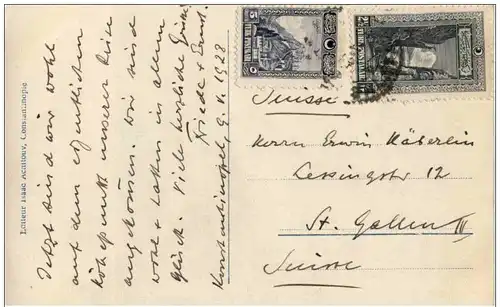 Jetzt sind wir wohl
auf dem eigentlichen
Höhepunkt unserer Reise
angekommen. Wir sind
wohl & haben in allem
Glück. Viele herzliche Grüsse
Friede & Ernst.
Konstantinopel, 9. V. 1928
Editeur Isaac Constantinople
Suisse.
Herrn Erwin Häberlin
Lessingstr 12
St. Gallen III
Suisse